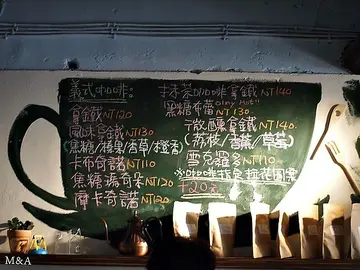 義式咖啡:
拿鐵NT120
風味拿鐵NT130
(焦糖/榛果/香草/
卡布奇諾NT110
焦糖瑪奇朵NT120
摩卡奇諾NT120
抹茶咖啡拿鐵NT140
黑糖布蕾"Only Hot"
NT130
微醺拿鐵NT140
(荔枝/香蕉/草莓)
雪克羅多NT110
※咖啡找克拉花圖案
+20元
M&A